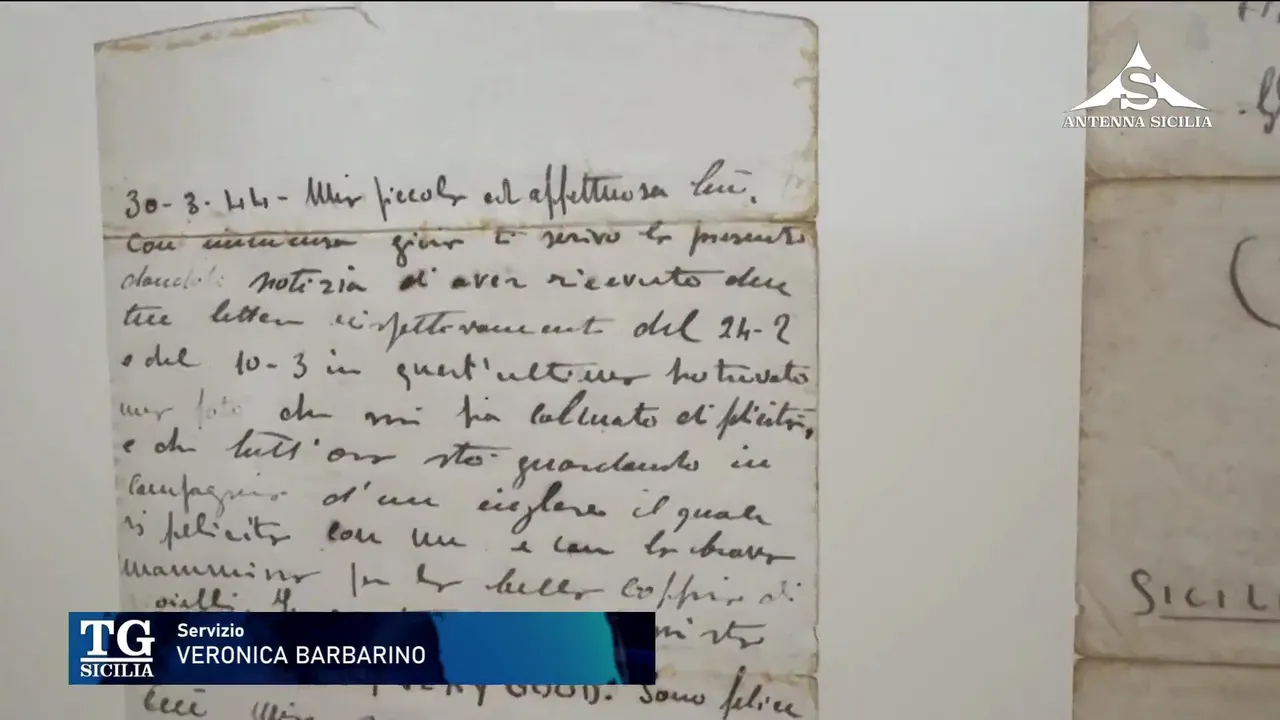 30-3-44- Mia piccola ed affettuosa Cicì,
Con immensa gioia ti scrivo la presente
dandoti notizia di aver ricevuto due
tue lettere rispettivamente del 24-2
e del 10-3 in quest'ultima ho trovato
una foto che mi ha colmato di felicità,
e che tutt'ora sto guardando in
compagnia d'un inglese il quale
si felicita con me e con la brava
mammina per la bella coppia di
gioielli.
VERY GOOD. Sono felice
Mia
SICIL
S
ANTENNA SICILIA
TG
SICILIA
Servizio
VERONICA BARBARINO